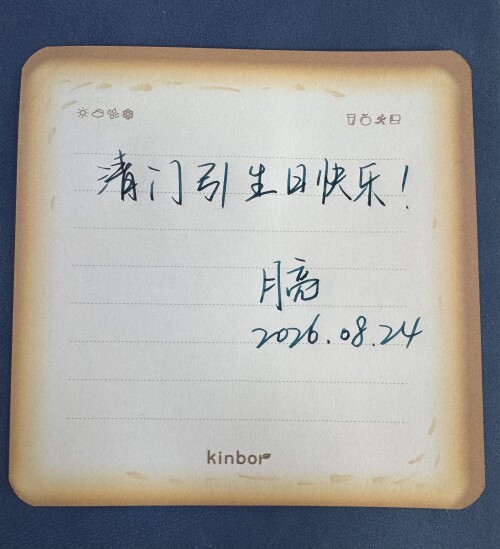 清门引生日快乐！
月亮
2026.08.24
kinbor